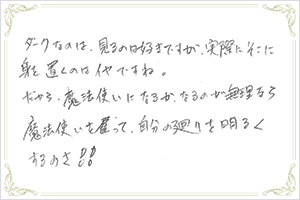 ダークなのは、見るのは好きですが、実際にそこに
身を置くのはイヤですね。
だから、魔法使いになるか、なるのが無理なら
魔法使いを雇って、自分の廻りを明るく
するのさ!!